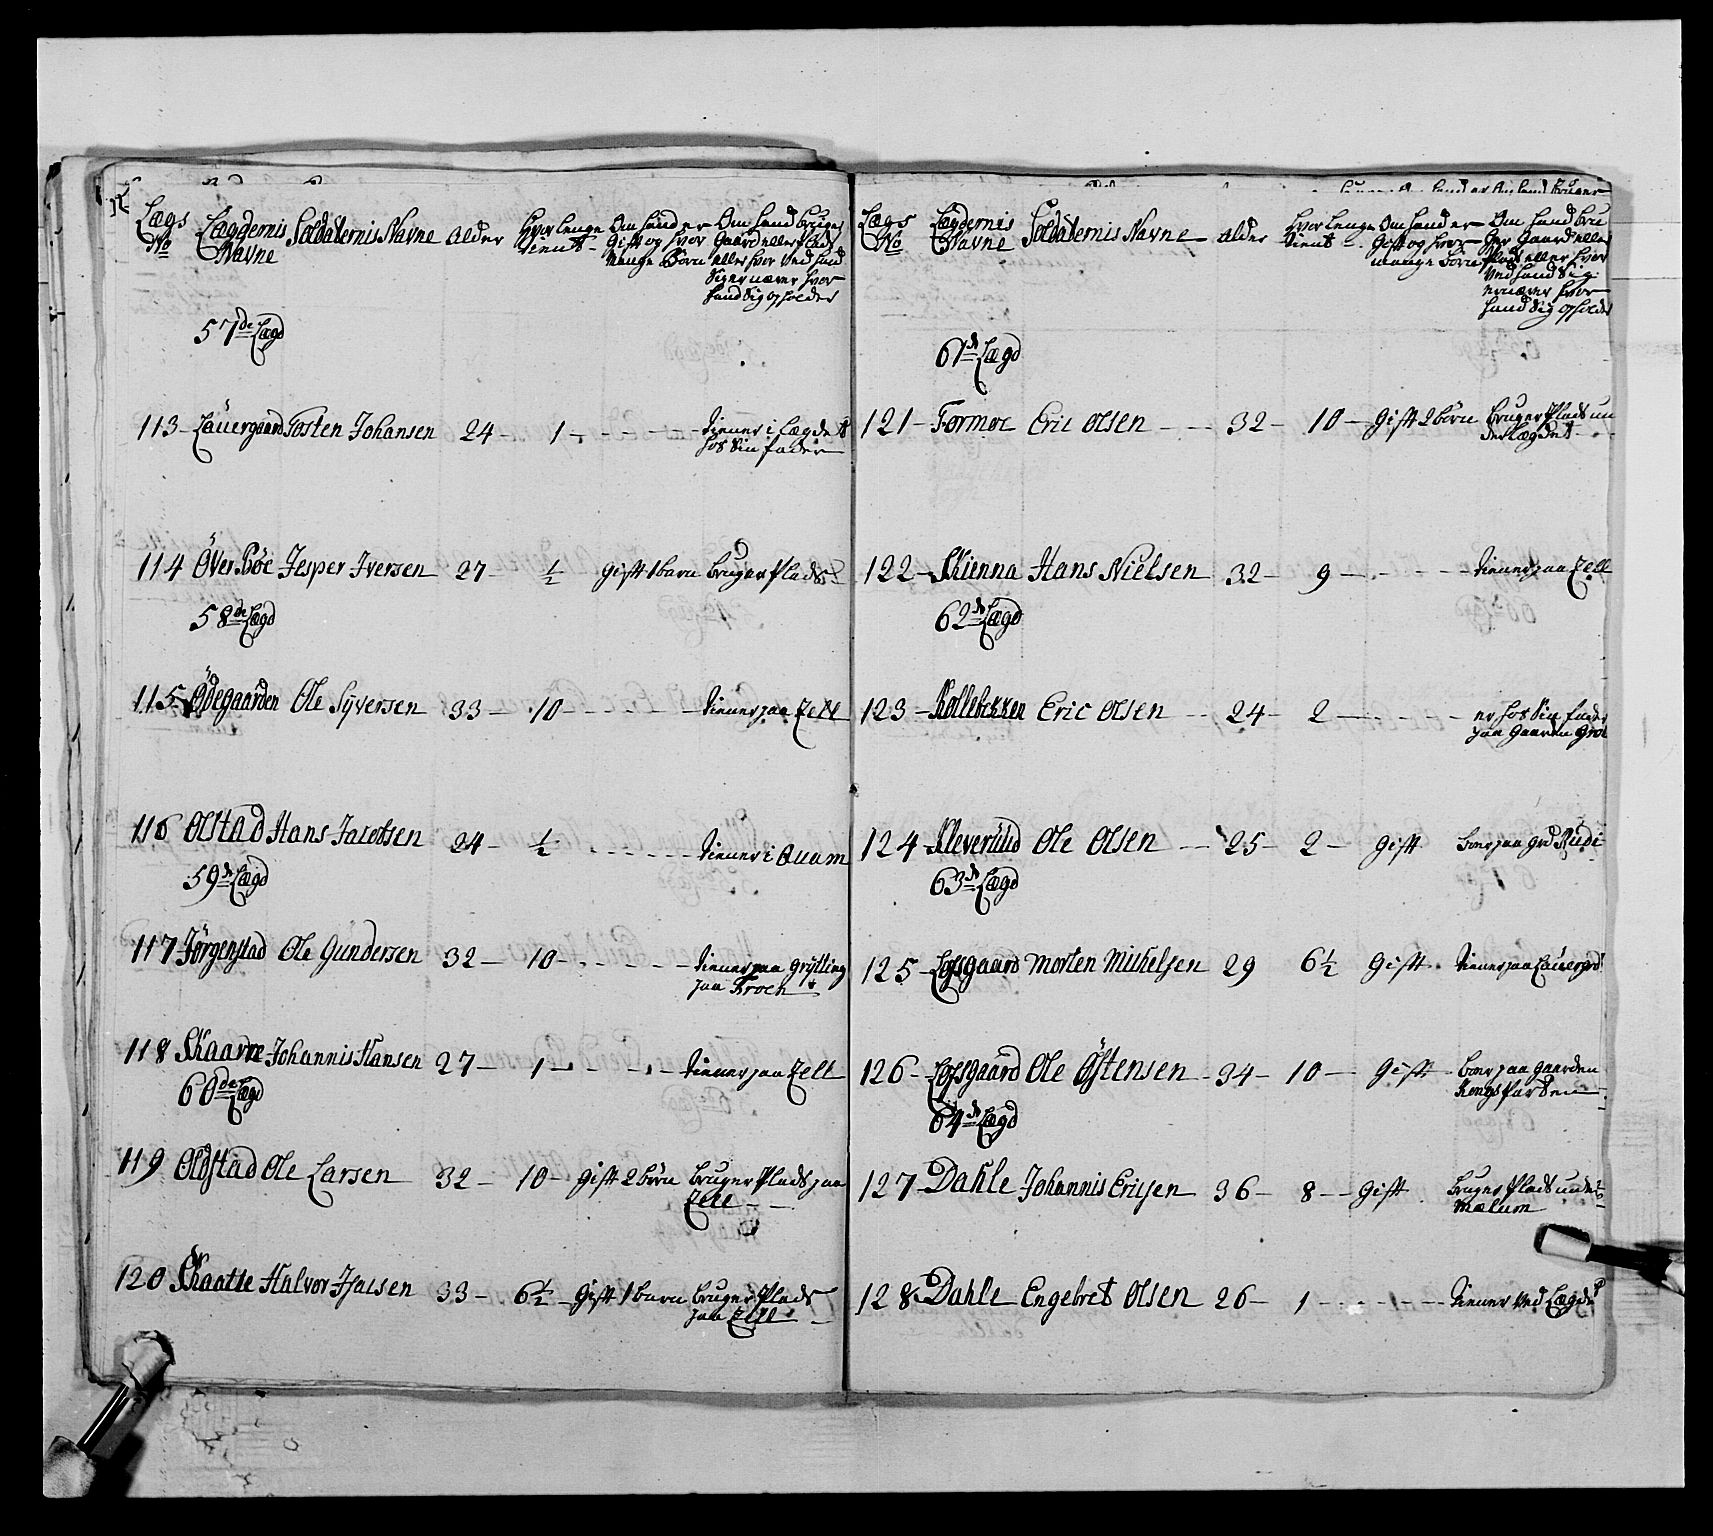 Lægs No
Lægdernis Navne
Soldaternis Navne
Alder
Hvor lenge tient
Om hand er Gift og hvor mange Børn
Om hand bruger Gaard eller Plads eller hvor ved hand Sig ernærer hvor hand Sig opholder
57de Lægd
113 Lauergaard Tosten Johansen 24 – 1 – tiener i Lægdet
hos Sin fader
114 Över Böe Jesper Iversen 27 – ½ gift 1 barn bruger Plads
58de Lægd
115 Ödegaarden Ole Syversen 33 – 10 – tiener paa Zell
116 Olstad Hans Jacobsen 24 – ½ tiener i Quam
59de Lægd
117 Jörgenstad Ole Gundersen 32 – 10 – tiener paa Grytting
paa Froen
118 Skaarre Johannis Hansen 27 – 1 – tiener paa Zell
60de Lægd
119 Olstad Ole Larsen 32 – 10 – gift 2 börn bruger Plads paa
Zell
120 Skaatte Halvor 33 – 6½ – gift 1 barn bruger Plads
paa Zell
Lægs No
Lægdernis Navne
Soldaternis Navne
Alder
Hvor lenge tient
Om hand er Gift og hvor mange börn
Om hand bruger Gaard eller Plads eller hvor ved hand Sig ernærer hvor hand Sig opholder
61de Lægd
121 – Formoe Eric Olsen 32 – 10 – gift 2 börn bruger Plads un
der Lægdet
122 – Skienna Hans Nielsen 32 – 9 – tiener paa Zell
62de Lægd
123 – Kollebekken Eric Olsen 24 – 2 – er hos Sin fader
paa Gaarden
124 – Kleverud Ole Olsen 25 – 2 – gift boer paa Grd Rudi
63de Lægd
125 – Losgaard Morten Michelsen 29 6½ gift tiener paa Lauergrd
126 – Losgaard Ole Östensen – 34 – 10 – gift boer paa Gaarden
Kongsparten
64de Lægd
127 – Dahle Johannis Ericsen 36 – 8 – gift bruger Plads under
Mælum
128 Dahle Engebret Olsen 26 – 1 – tiener ved Lægdet